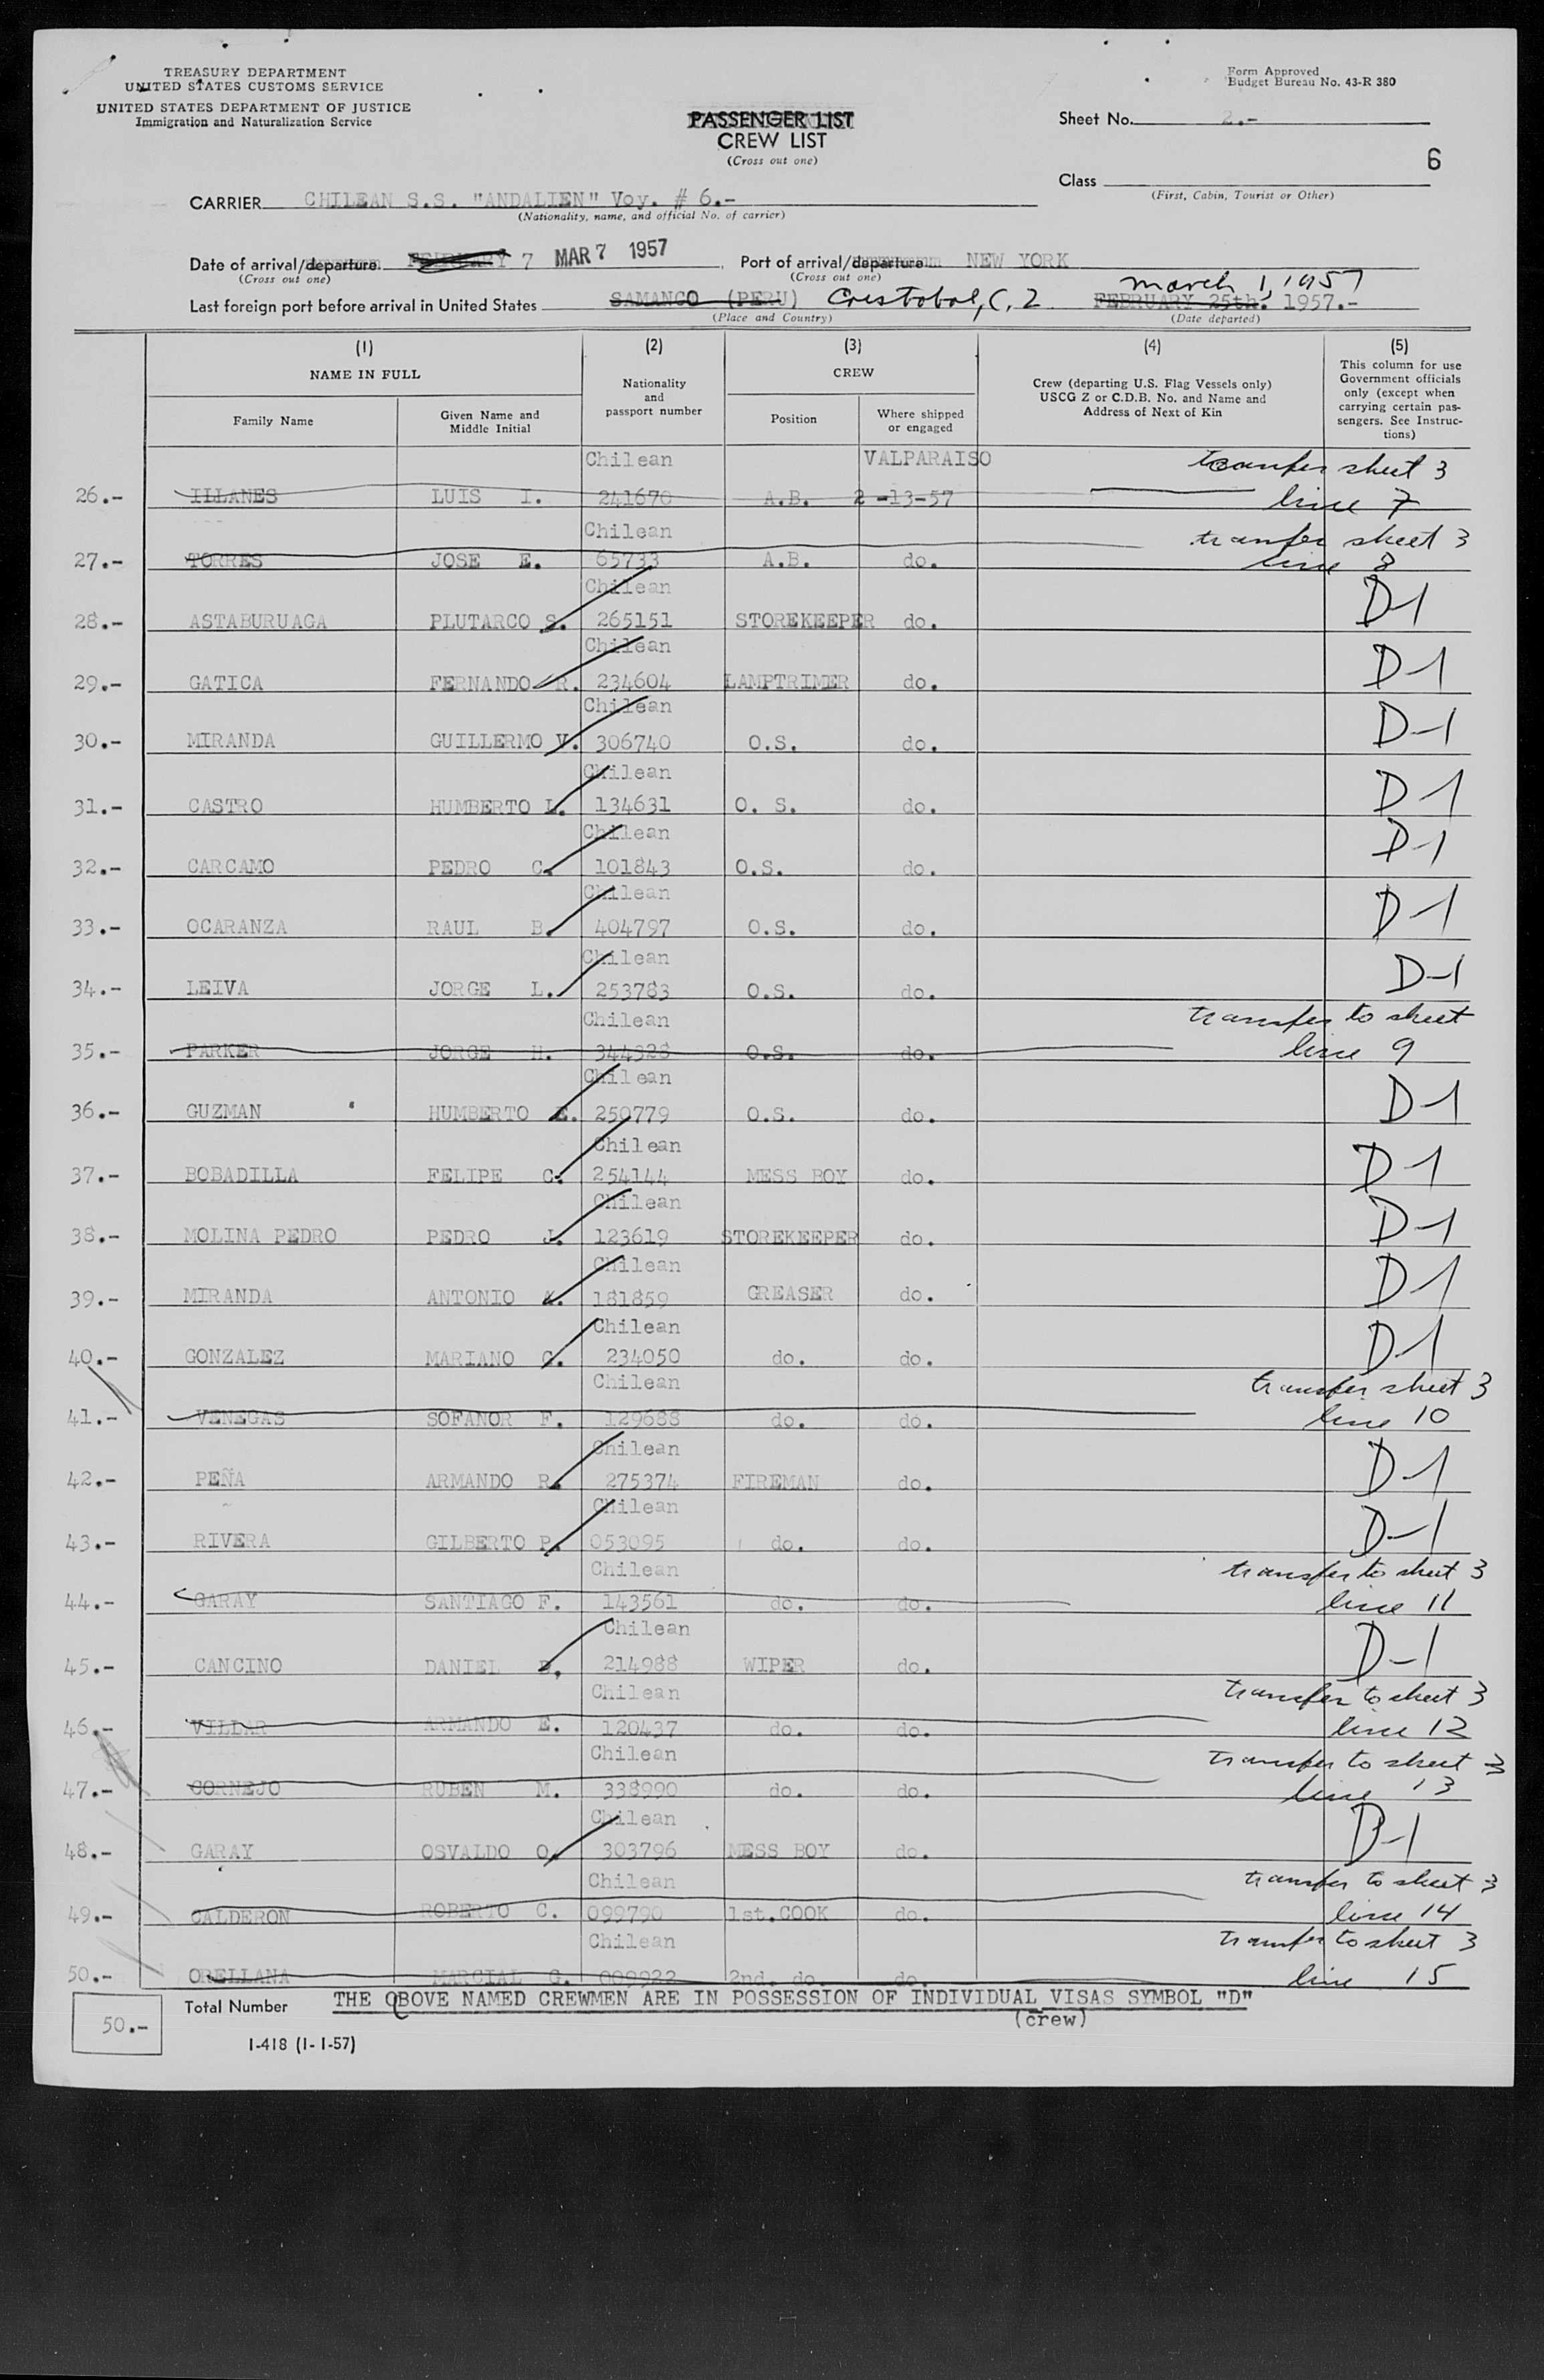 TREASURY DEPARTMENT
UNITED STATES CUSTOMS SERVICE
UNITED STATES DEPARTMENT OF JUSTICE
Immigration and Naturalization Service
Form Approved
Budget Bureau No. 43-R 380
PASSENGER LIST
CREW LIST
(Cross out one)
Sheet No. 2.-
6
Class
(First, Cabin, Tourist or Other)
CARRIER CHILEAN S.S. "ANDALIEN" Voy. # 6.-
(Nationality, name, and official No. of carrier)
Date of arrival/departure FEBRUARY 7 MAR 7 1957 Port of arrival/departure NEW YORK
(Cross out one) (Cross out one)
march 1, 1957
Last foreign port before arrival in United States SAMANCO (PERU) Crestobal, C, Z FEBRUARY 25th. 1957.-
(Place and Country) (Date departed)
(1) (2) (3) (4) (5)
NAME IN FULL Nationality and passport number CREW Crew (departing U.S. Flag Vessels only) USCG Z or C.D.B. No. and Name and Address of Next of Kin This column for use Government officials only (except when carrying certain passengers. See Instructions)
Family Name Given Name and Middle Initial Position Where shipped or engaged
Chilean VALPARAISO tranfer sheet 3
26.- ILLANES LUIS I. 241670 A.B. 2 -13-57 line 7
Chilean tranfer sheet 3
27.- TORRES JOSE E. 65733 A.B. do. line 8
Chilean
28.- ASTABURUAGA PLUTARCO S. 265151 STOREKEEPER do. D-1
Chilean
29.- GATICA FERNANDO R. 234604 LAMPTRIMER do. D-1
Chilean
30.- MIRANDA GUILLERMO V. 306740 O.S. do. D-1
Chilean
31.- CASTRO HUMBERTO L. 134631 O. S. do. D-1
Chilean
32.- CARCAMO PEDRO C. 101843 O.S. do. D-1
Chilean
33.- OCARANZA RAUL B. 404797 O.S. do. D-1
Chilean
34.- LEIVA JORGE L. 253783 O.S. do. D-1
Chilean transfer to sheet
35.- PARKER JORGE H. 344328 O.S. do. line 9
Chilean
36.- GUZMAN HUMBERTO E. 250779 O.S. do. D-1
Chilean
37.- BOBADILLA FELIPE C. 254144 MESS BOY do. D-1
Chilean
38.- MOLINA PEDRO PEDRO J. 123619 STOREKEEPER do. D-1
Chilean
39.- MIRANDA ANTONIO 181859 GREASER do. D-1
Chilean
40.- GONZALEZ MARIANO C. 234050 do. do. D-1
Chilean transfer sheet 3
41.- VENEGAS SOFANOR F. 129688 do. do. line 10
Chilean
42.- PEÑA ARMANDO R. 275374 FIREMAN do. D-1
Chilean
43.- RIVERA GILBERTO P. 053095 do. do. D-1
Chilean transfer to sheet 3
44.- GARAY SANTIAGO F. 143561 do. do. line 11
Chilean
45.- CANCINO DANIEL 214988 WIPER do. D-1
Chilean transfer to sheet 3
46.- VILLAR ARMANDO E. 120437 do. do. line 12
Chilean transfer to sheet 3
47.- CORNEJO RUBEN M. 338990 do. do. line 13
Chilean
48.- GARAY OSVALDO O. 303796 MESS BOY do. D-1
Chilean transfer to sheet 3
49.- CALDERON ROBERTO C. 099790 1st.COOK do. line 14
Chilean transfer to sheet 3
50.- ORELLANA MARCIAL G. 009922 2nd. do. do. line 15
50.- Total Number THE OBOVE NAMED CREWMEN ARE IN POSSESSION OF INDIVIDUAL VISAS SYMBOL "D"
(crew)
I-418 (1-1-57)